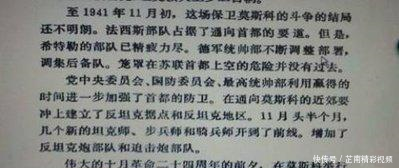 至1941年11月初，这场保卫莫斯科的斗争的结局
还不明朗。法西斯部队占据了通向首都的要道。但是，
希特勒的部队已精疲力尽。德军统帅部不断调整部署，
调集后备队。笼罩在苏联首都上空的危险并没有过去。
党中央委员会、国防委员会、最高统帅部利用赢得的
时间进一步加强了首都的防卫。在通向莫斯科的近郊要
冲上建立了反坦克据点和反坦克地区。11月头半个月，
几个新的坦克师、步兵师和骑兵师开到了前线。增加了
反坦克炮部队和迫击炮部队。
伟大的十月革命二十四周年的前夕，在莫斯科举行
快传号/芷南精彩视频